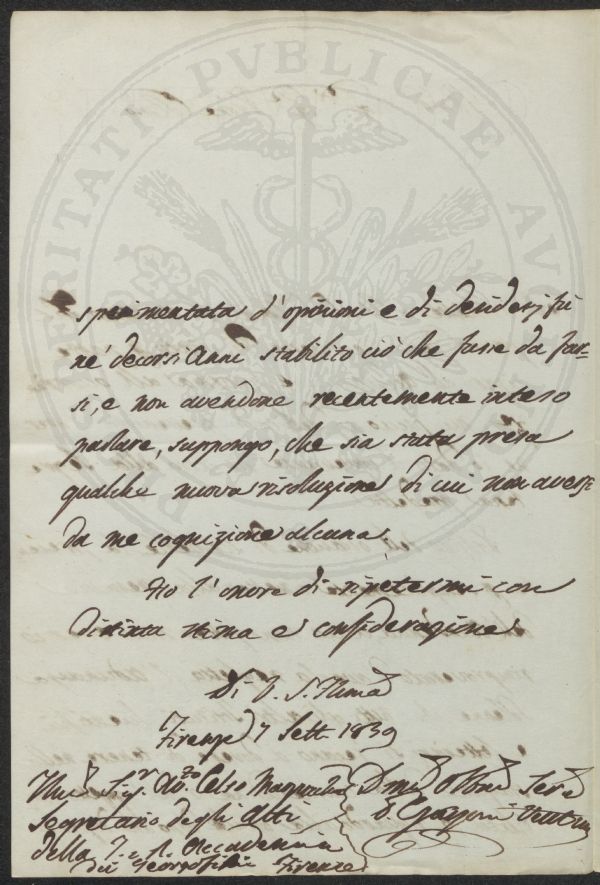 PROSPERITATI PVBLICAE AVGENDAE
sperimentata d'opinioni e di desiderj fù
ne' decorsi Anni stabilito ciò che fusse da far-
si, e non avendone recentemente inteso
parlare, suppongo, che sia stata presa
qualche nuova risoluzione di cui non avessi
da me cognizione alcuna.
Ho l'onore di ripetermi con
distinta stima e considerazione
Di V. S. Illma
Firenze 7 Sett. 1839
Illmo Sigr. Celso
Segretario degli Atti
della I. e R. Accademia
dei Georgofili Firenze
Dmo Obbmo Serv